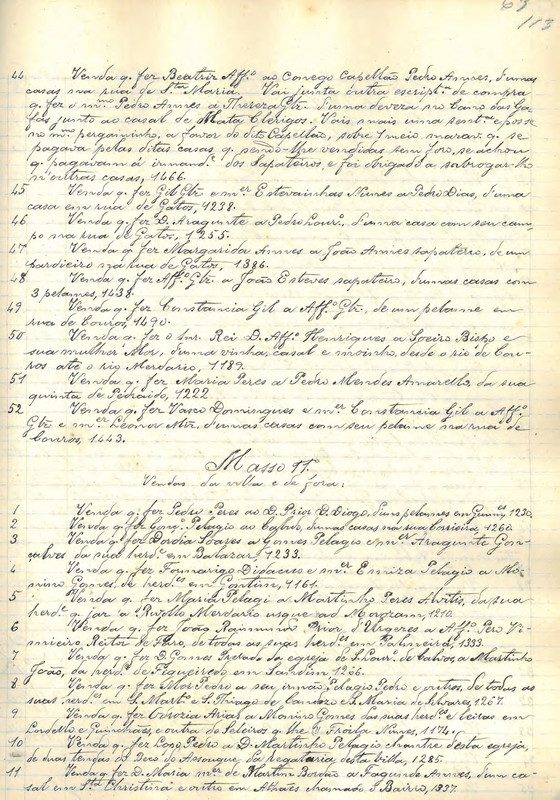 113
44 Venda q. fez Beatriz Aff.º ao Conego Capellão Pedro Annes, d'umas
casas na rua de S.ta Maria. Vai junta outra escript.ª de compra
q. fez o m.mo Pedro Annes a Thereza Glz. d'uma deveza no Cano das Ga-
fas junto ao casal de Mata Clerigos. Vais mais uma sent.ª e posse
no m.mo pergaminho, a favor do dito Capellão, sobre 1 meio marav. q. se
pagava pelas ditas casas q. sendo-lhe vendidas sem foro, se achou
q. pagavam á irmand.e dos Sapateiros, e foi obrigado a sobrogar-lh'o
n'outras casas, 1466.
45 Venda q. fez Gil Glz. e m.er Estevainhas Nunes a Pedro Dias, d'uma
casa em rua de Gatos, 1238.
46 Venda q. fez D. Aragunte a Pedro Lour.º, d'uma casa com seu cam-
po na rua de Gatos, 1255.
47 Venda q. fez Margarida Annes a João Annes sapateiro, de um
pardieiro na rua de Gatos, 1386.
48 Venda q. fez Aff.º Glz. a João Esteves sapateiro, d'umas casas com
3 pelames, 1438.
49 Venda q. fez Constancia Gil a Aff.º Glz. de um pelame em
rua de Couros, 1490.
50 Venda q. fez o Snr. Rei D. Aff.º Henriques a Soeiro Bispo e
sua mulher Mor, d'uma vinha, casal e moinho, desde o rio de Cou-
ros até o rio Merdario, 1189.
51 Venda q. fez Maria Peres a Pedro Mendes Amarello, da sua
quinta de Pedraido, 1222
52 Venda q. fez Vasco Domingues e m.er Constancia Gil a Aff.º
Glz e m.er Leonor Miz. d'umas casas com seu pelame na rua de
Couros, 1443.
Masso 11.º
Vendas da villa e de fora:
1 Venda q. fez Pedro Peres ao D. Prior D. Diogo, d'uns pelames em Guim.es 1230.
2 Venda q. fez Gonç.º Pelagio ao Cabido, d'umas casas na rua 1260.
3 Venda q. fez Dordia Soares a Gomes Pelagio e m.er Aragunte Gon-
çalves da sua herd.e em Balazar, 1233.
4 Venda q. fez Formarigo Didacus e m.er Ermiza Pelagio a Mo-
nino Gomes, de herd.es em Gontim, 1161.
5 Venda q. fez Maria Pelagi a Martinho Peres Alvitis, da sua
herd.e q. jar "a Rivollo Merdario usque ad Morozam, 1210.
6 Venda q. fez João Raimundo Prior d'Urgezes a Aff.º Pero Vi-
mieiro Reitor de Faro, de todas as suas herd.es em Palmeira, 1333.
7 Venda q. fez D. Gomes Prelado da egreja de S. Lour. de Calvos a Martinho
João, da herd.e de Figueiredo em Sandim, 1206.
8 Venda q. fez Mor Pedro a seu irmão Pelagio Pedro e outros, de todas as
suas herd. em S. Mart.º e S. Thiago de Candozo e S. Maria de Silvares, 1267.
9 Venda q. fez Ororia Arias a Monino Gomes das suas herd.es e leiras em
Lordello e Guinchaes, e outra de Seleiros q. lhe Froila Nunes, 1174.
10 Venda q. fez Lopo Pedro a D. Martinho Pelagio chantre desta egreja,
de duas tendas do Beco do Assougue, da vegataria desta villa, 1285.
11 Venda q. fez D. Maria m.er de Martim Bordão a Fagundo Annes, d'um ca-
sal em Sta. Christina e outro em Athães chamado S. Bairro, 1237.